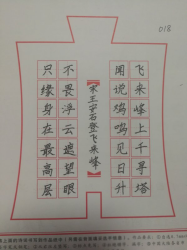 018
飞来峰上千寻塔
闻说鸡鸣见日升
【宋王安石登飞来峰】
不畏浮云遮望眼
只缘身在最高层